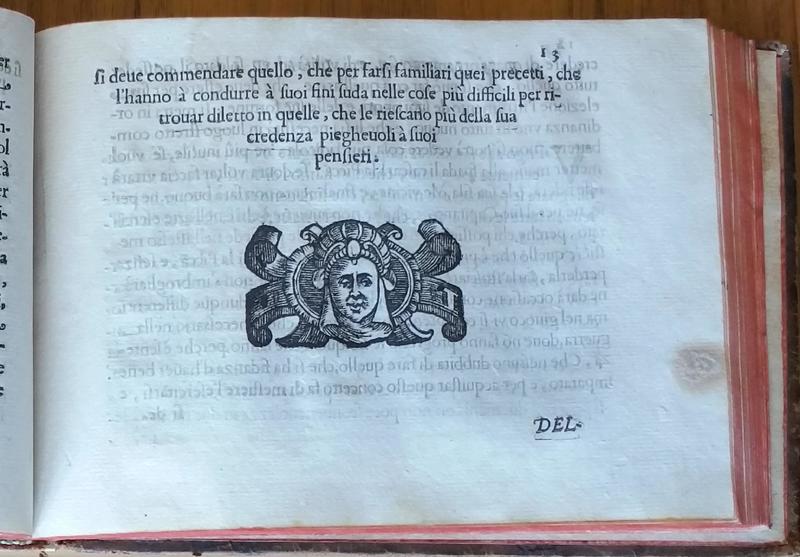 13
si deue commendare quello, che per farsi familiari quei precetti, che
l'hanno à condurre à suoi fini suda nelle cose più difficili per ri-
trouar diletto in quelle, che le riescano più della sua
credenza piegheuoli à suoi
pensieri.
DEL-